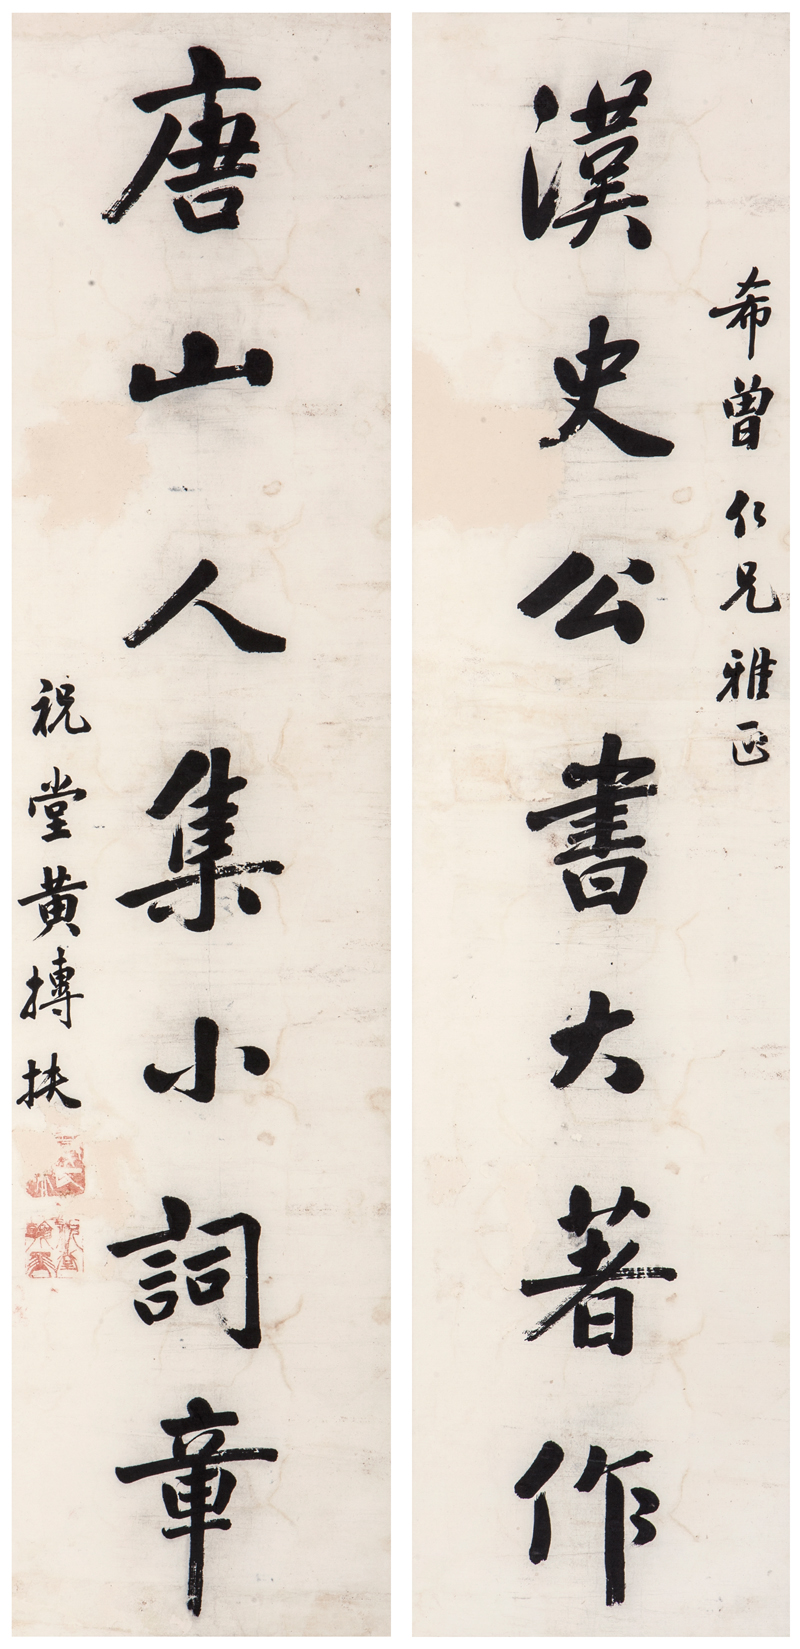 希曾仁兄雅正
漢史公書大著作
唐山人集小詞章
祝堂黃摶扶